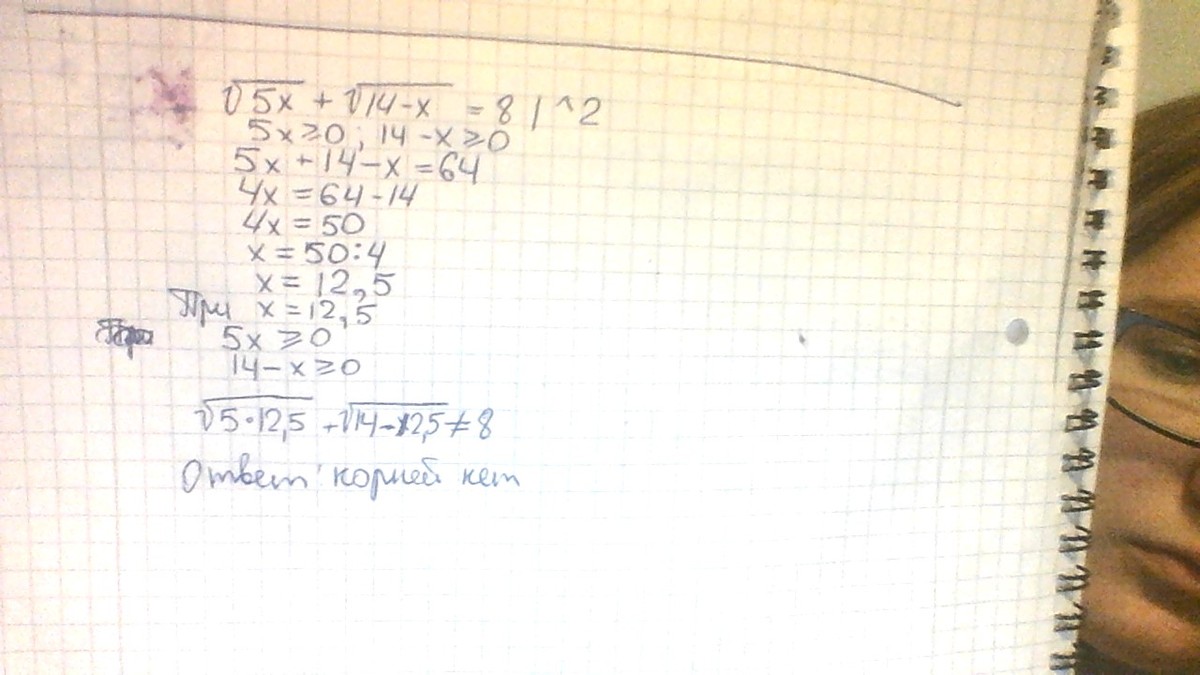 √5x + √14-x = 8 | ^2
5x ≥ 0 ; 14 - x ≥ 0
5x + 14 - x = 64
4x = 64 - 14
4x = 50
x = 50:4
x = 12,5
При x = 12,5
5x ≥ 0
14 - x ≥ 0
√5·12,5 + √14-12,5 ≠ 8
Ответ: корней нет